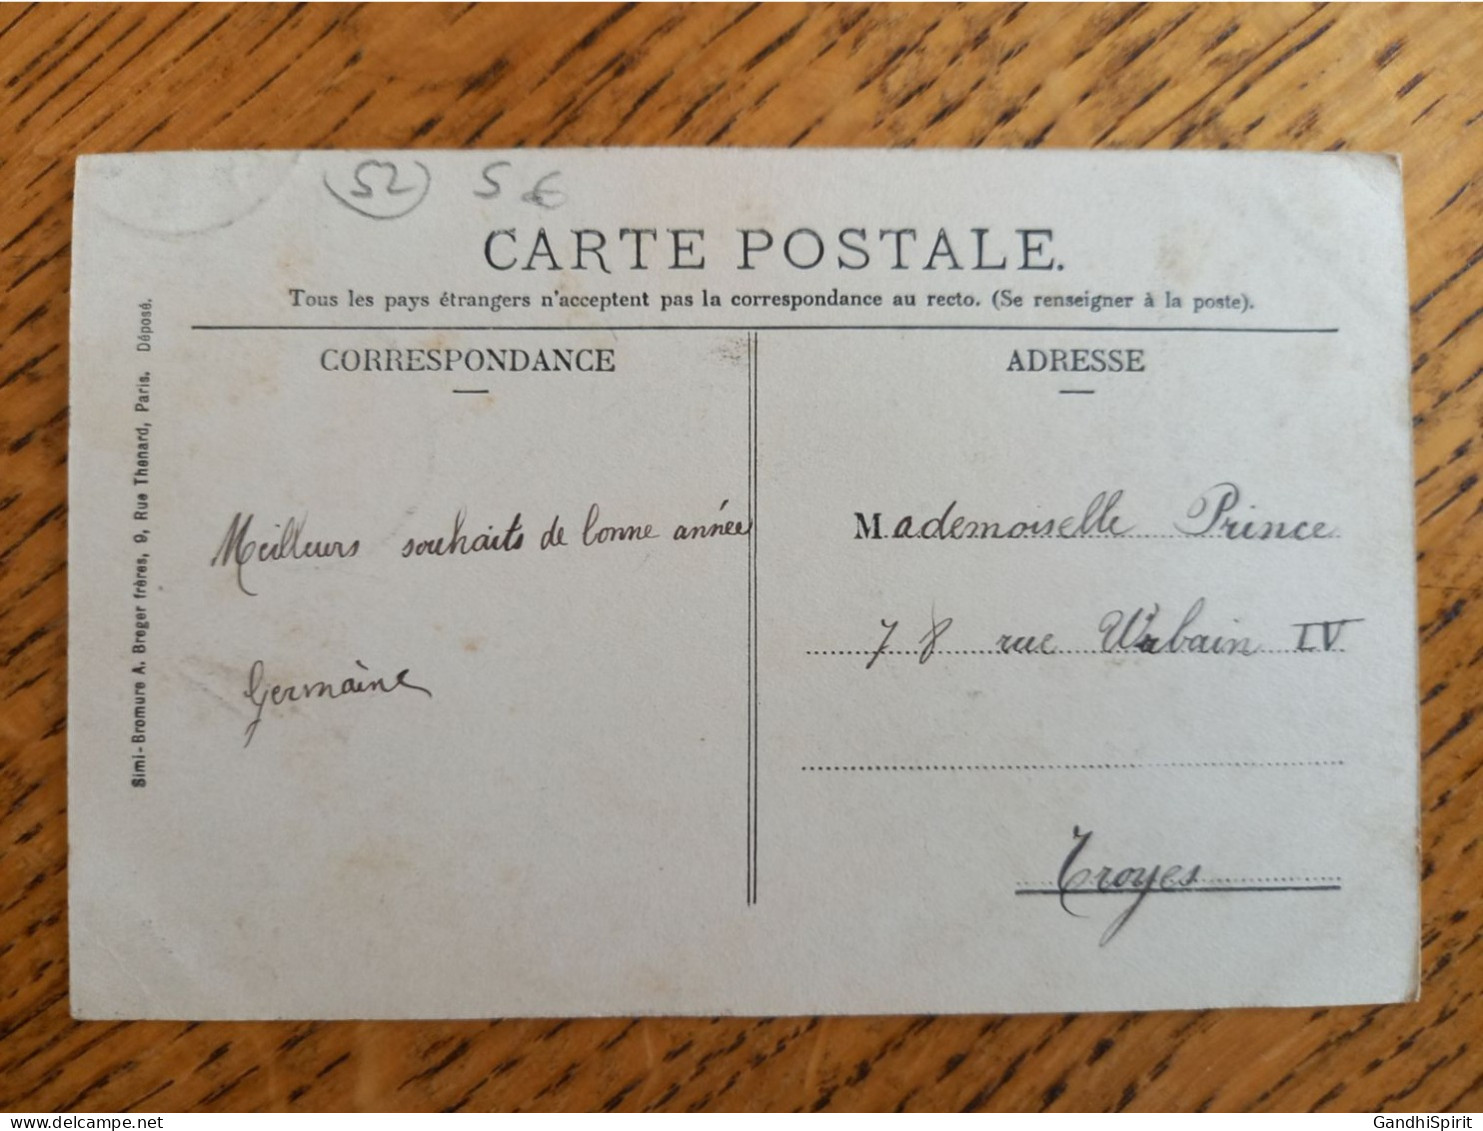 52 5 €
CARTE POSTALE.
Tous les pays étrangers n'acceptent pas la correspondance au recto. (Se renseigner à la poste).
CORRESPONDANCE
Meilleurs souhaits de bonne année
Germaine
ADRESSE
Mademoiselle Prince
78 rue Urbain IV
Troyes
Simi-Bromure A. Breger frères, 9, Rue Thenard, Paris. Déposé.
GandhiSpirit